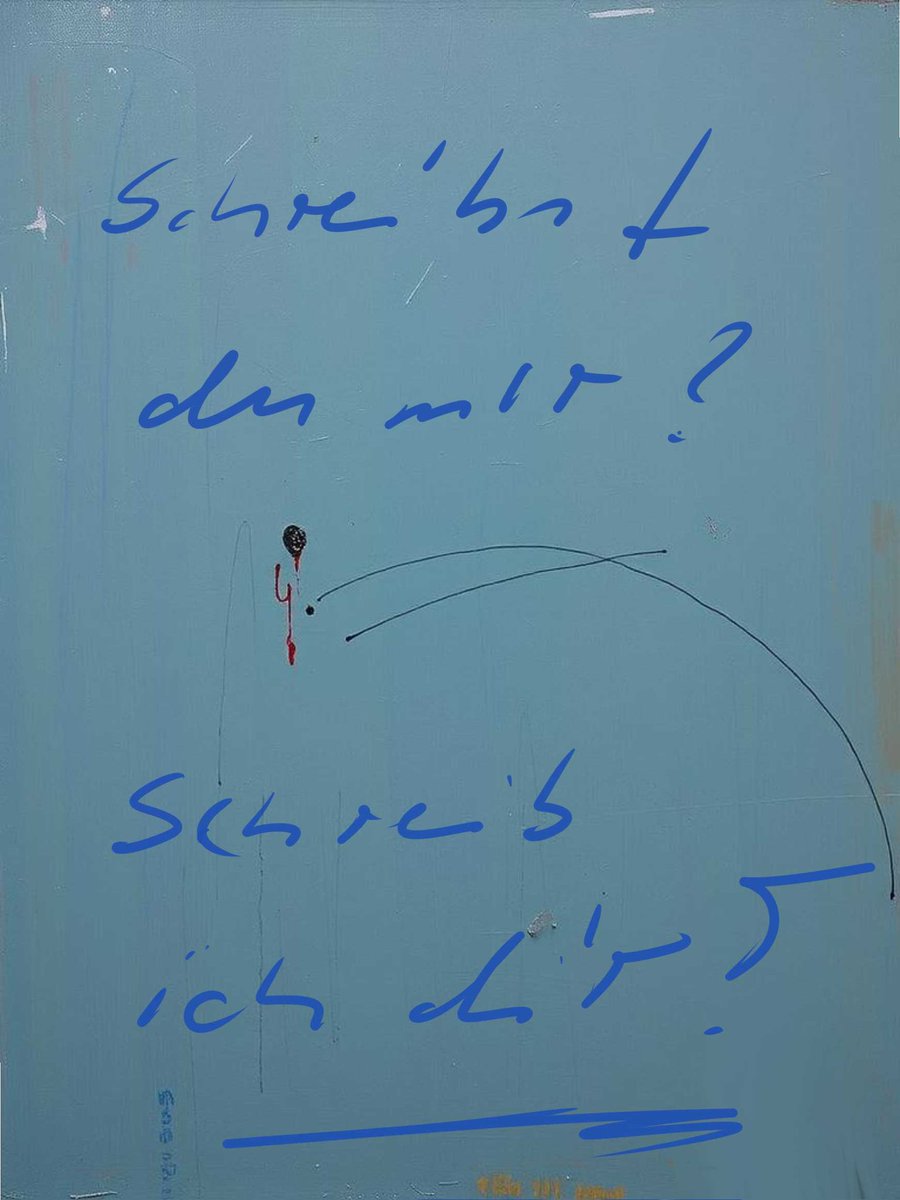 Schreibst
du mir?
Schreib
ich dir?